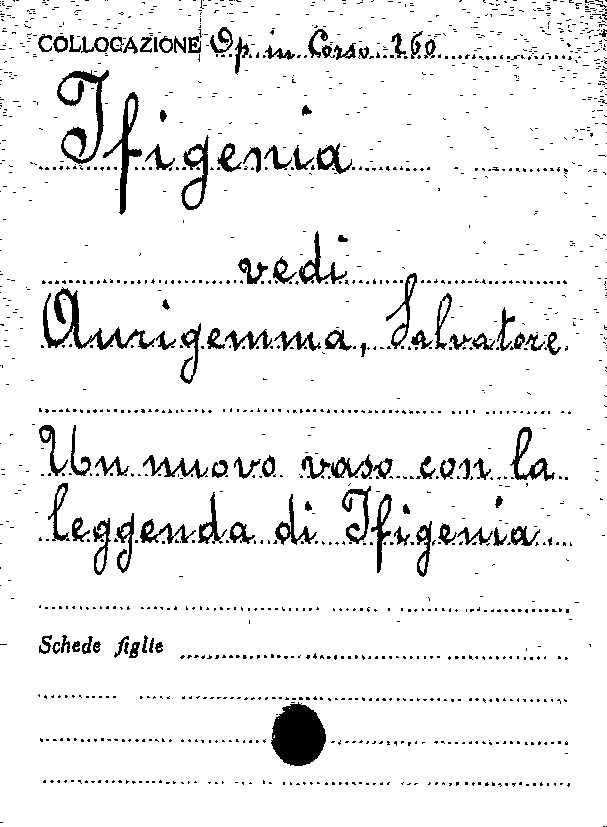 COLLOCAZIONE Op. in Corso 260
Ifigenia
vedi
Aurigemma, Salvatore
Un nuovo vaso con la
leggenda di Ifigenia.
Schede figlie